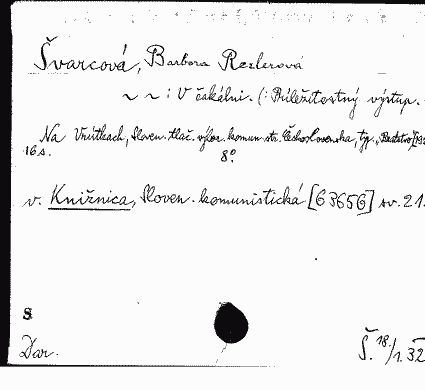 Švarcová, Barbora Rezlerová
~ ~ : V čakálni. (: Príležitostný výstup.
Na Vrútkach, Sloven. tlač. výbor. komun. str. Československa, typ.
16 s. 8°
v. Knižnica, Sloven. komunistická [63656] sv. 21.
S
Dar. Š. 18./1. 32